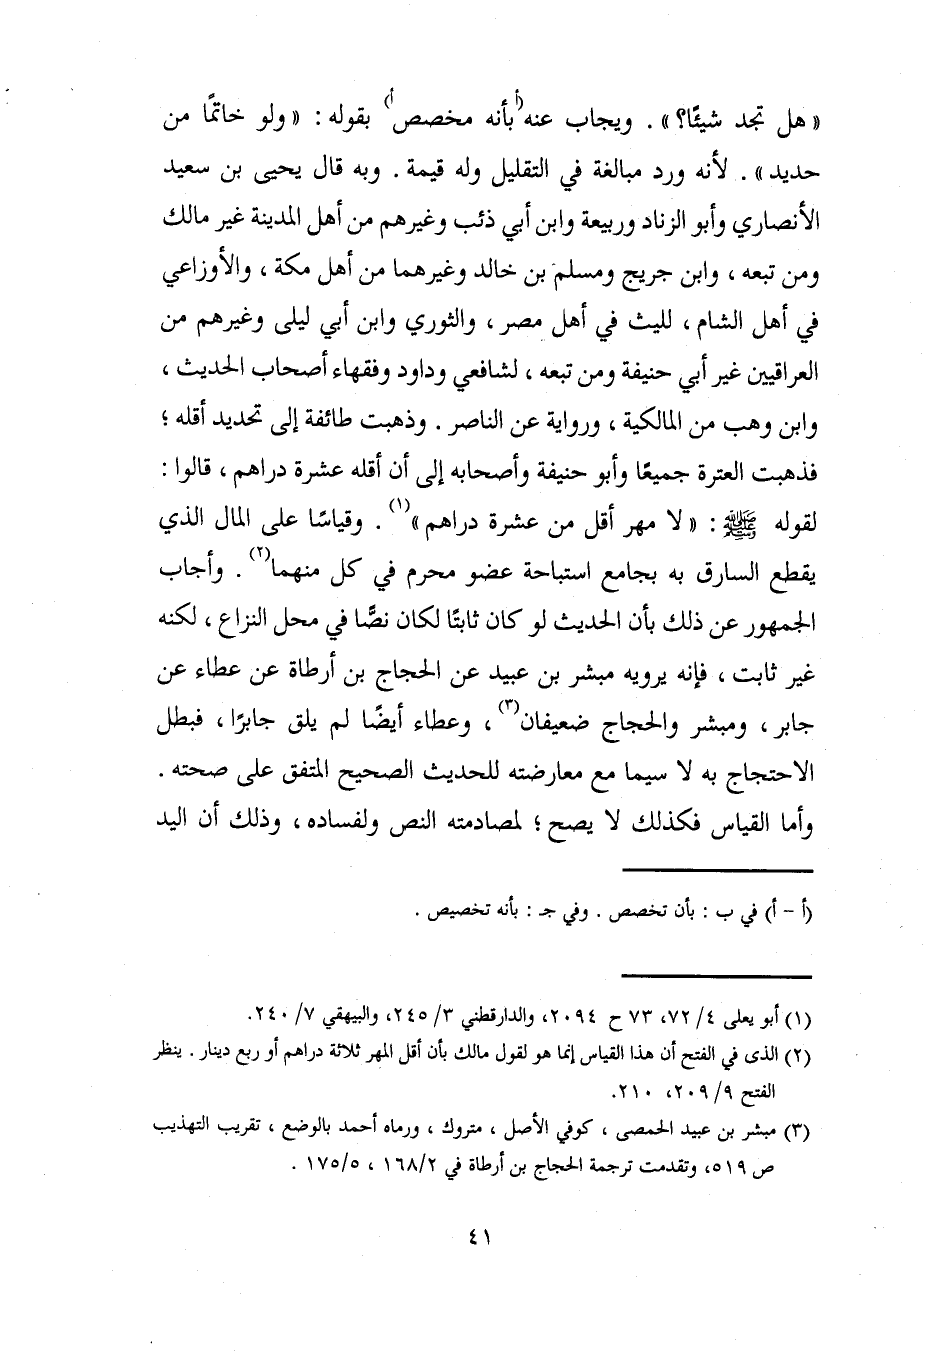 « هل تجد شيئًا؟ » . ويجاب عنه (أ بأنه مخصص أ) بقوله : « ولو خاتمًا من
حديد » . لأنه ورد مبالغة في التقليل وله قيمة . وبه قال يحيى بن سعيد
الأنصاري وأبو الزناد وربيعة وابن أبي ذئب وغيرهم من أهل المدينة غير مالك
ومن تبعه ، وابن جريج ومسلم بن خالد وغيرهما من أهل مكة ، والأوزاعي
في أهل الشام ، لليث في أهل مصر ، والثوري وابن أبي ليلى وغيرهم من
العراقيين غير أبي حنيفة ومن تبعه ، لشافعي وداود وفقهاء أصحاب الحديث ،
وابن وهب من المالكية ، ورواية عن الناصر . وذهبت طائفة إلى تحديد أقله ؛
فذهبت العترة جميعًا وأبو حنيفة وأصحابه إلى أن أقله عشرة دراهم ، قالوا :
لقوله ﷺ : « لا مهر أقل من عشرة دراهم »(١) . وقياسًا على المال الذي
يقطع السارق به بجامع استباحة عضو محرم في كل منهما(٢) . وأجاب
الجمهور عن ذلك بأن الحديث لو كان ثابتًا لكان نصًّا في محل النزاع ، لكنه
غير ثابت ، فإنه يرويه مبشر بن عبيد عن الحجاج بن أرطاة عن عطاء عن
جابر ، ومبشر والحجاج ضعيفان(٣) ، وعطاء أيضًا لم يلق جابرًا ، فبطل
الاحتجاج به لا سيما مع معارضته للحديث الصحيح المتفق على صحته .
وأما القياس فكذلك لا يصح ؛ لمصادمته النص ولفساده ، وذلك أن اليد
(أ - أ) في ب : بأن تخصص . وفي جـ : بأنه تخصيص .
(١) أبو يعلى ٤/ ٧٢، ٧٣ ح ٢٠٩٤، والدارقطني ٣/ ٢٤٥، والبيهقي ٧/ ٢٤٠.
(٢) الذى في الفتح أن هذا القياس إنما هو لقول مالك بأن أقل المهر ثلاثة دراهم أو ربع دينار . ينظر
الفتح ٩/ ٢٠٩، ٢١٠.
(٣) مبشر بن عبيد الحمصى ، كوفي الأصل ، متروك ، ورماه أحمد بالوضع ، تقريب التهذيب
ص ٥١٩، وتقدمت ترجمة الحجاج بن أرطاة في ١٦٨/٢ ، ١٧٥/٥ .
٤١